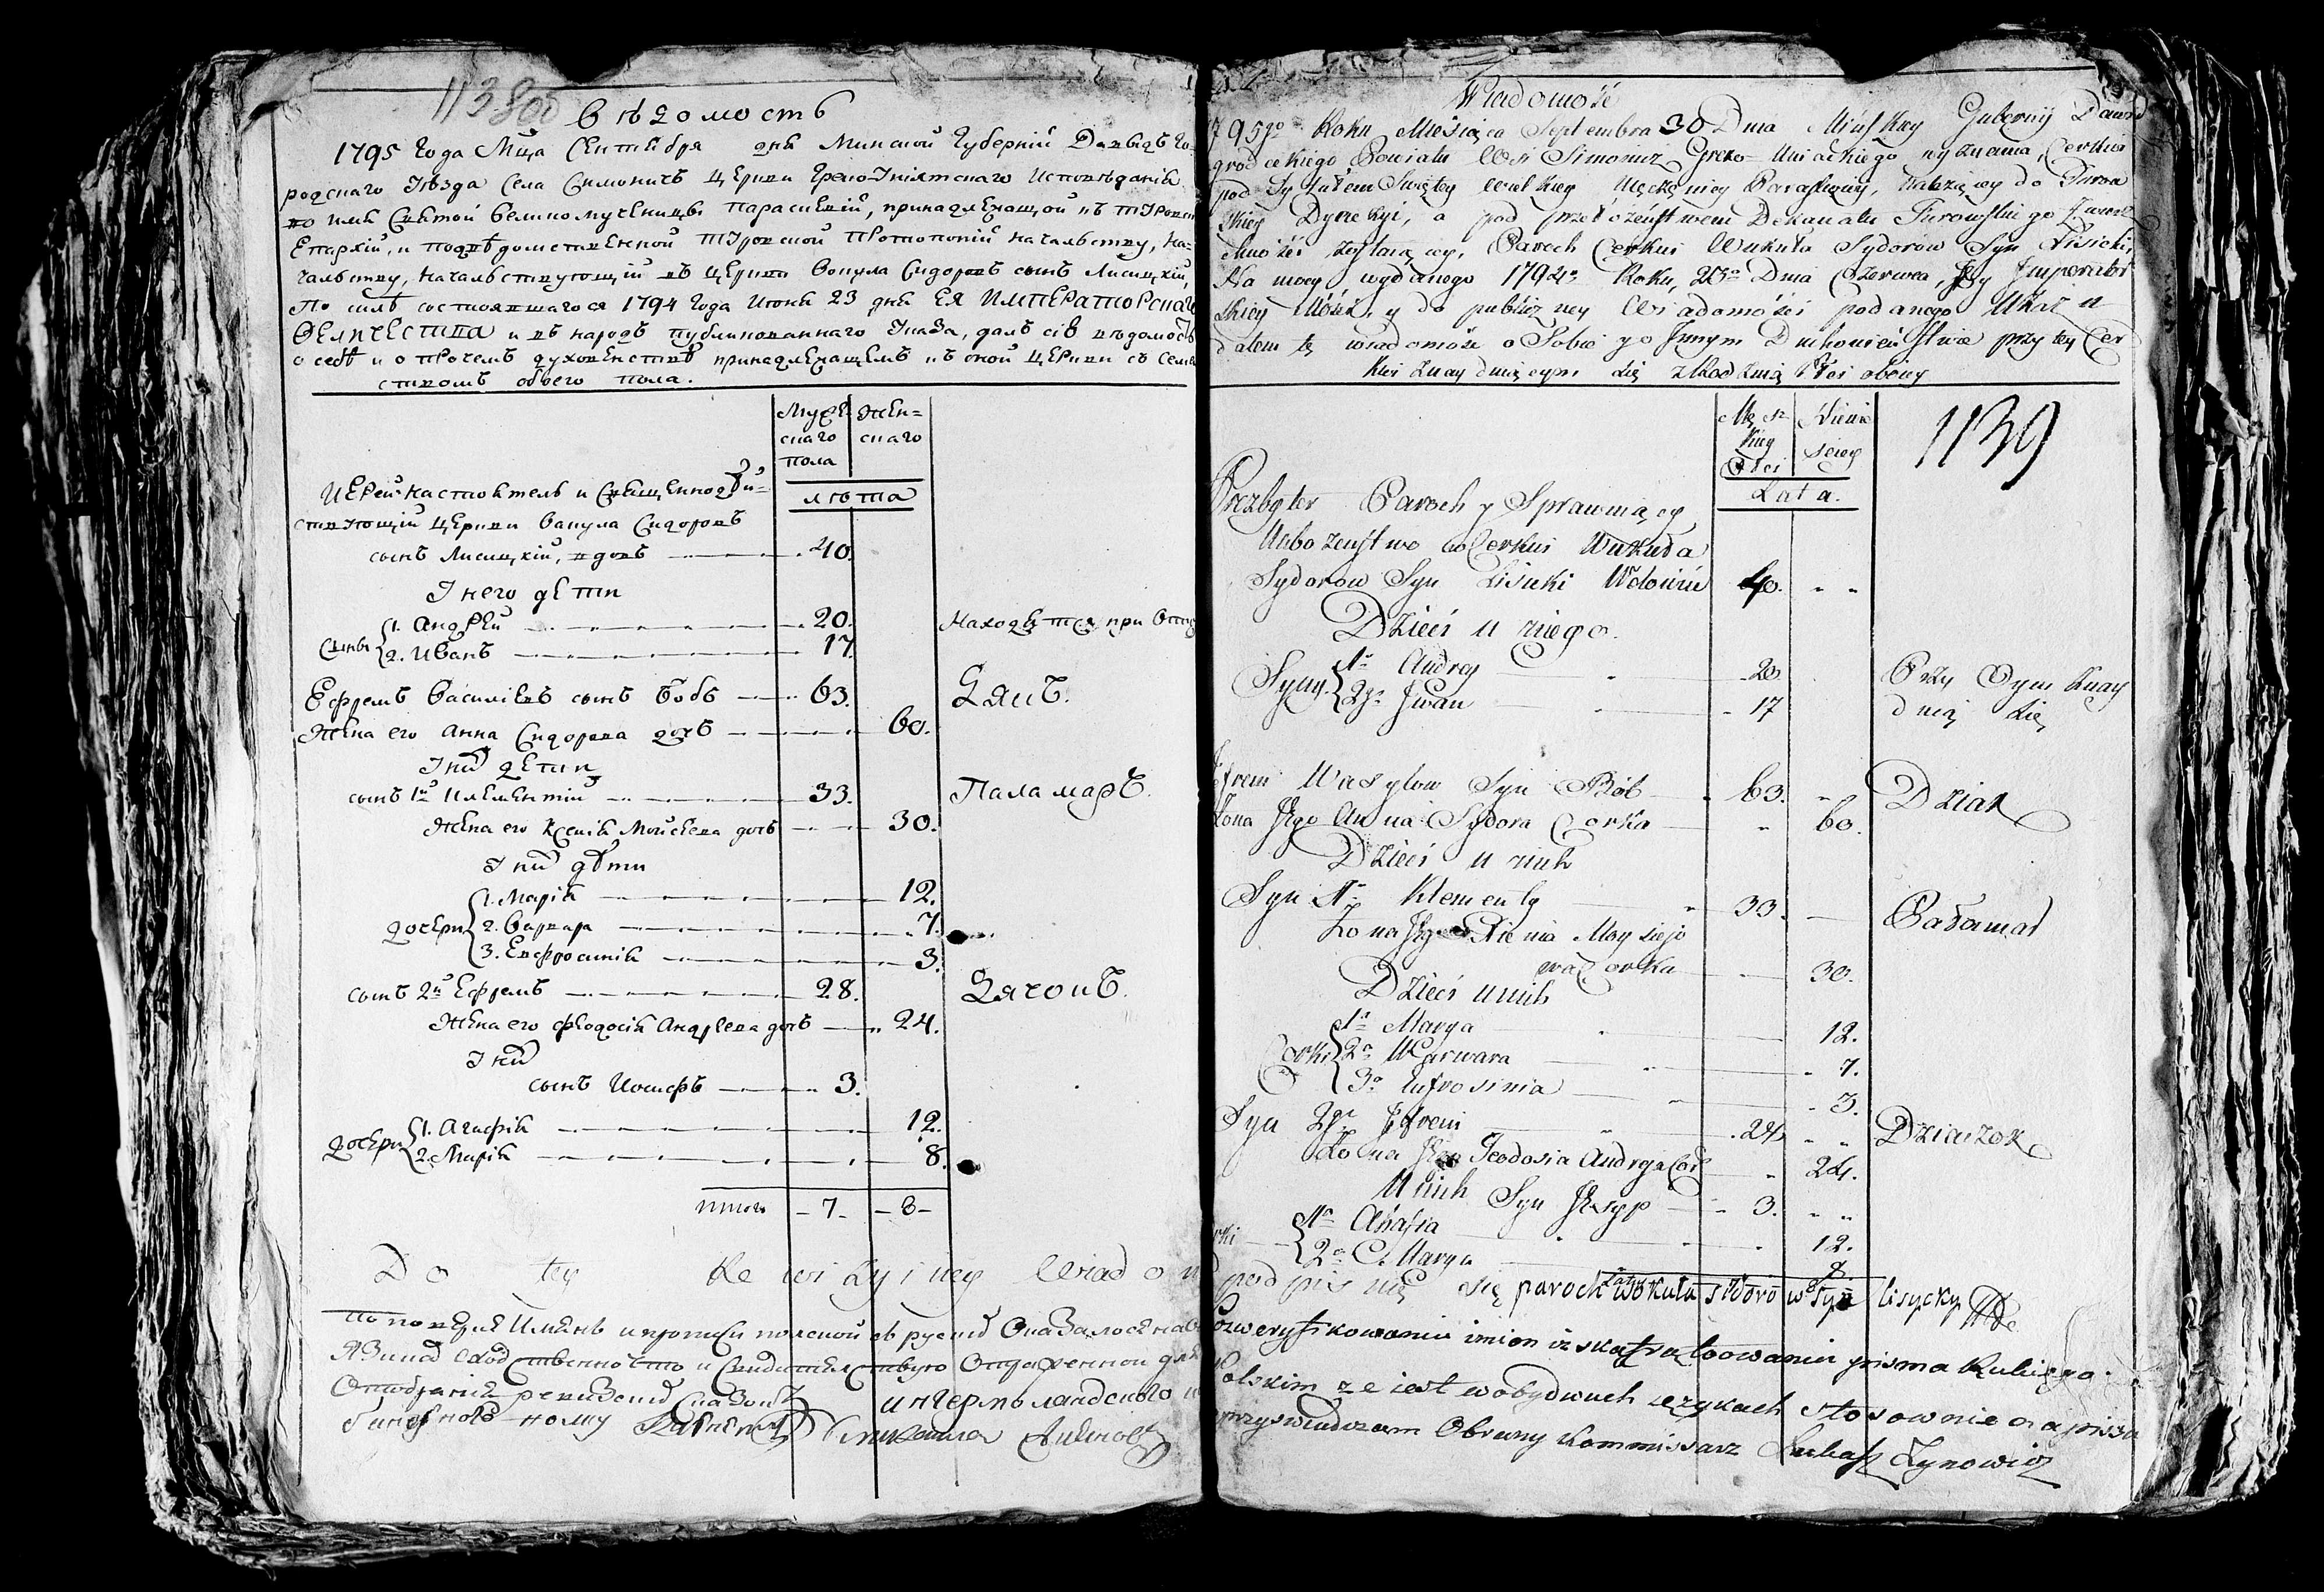 113
Вѣдомость
1795 Года Мца Сентября дня Минской Губерніи Давыдъ Го-
родскаго Уѣзда Села Симоничъ Церкви Греко-Уніятскаго Исповѣданія
во имя Святой Великомученицы Параскевіи, принадлежащой къ Туровской
Епархіи, и подвѣдомственной Туровской Протопопіи начальству, На-
чальству, начальствующій въ Церкви Вакула Сидоровъ сынъ Лисицкій,
По силѣ состоявшагося 1794 года Июня 23 дня ЕЯ ИМПЕРАТОРСКАГО
ВЕЛИЧЕСТВА и въ народъ публикованнаго Указа, далъ сію вѣдомость
о себѣ и о прочемъ духовенствѣ принадлежащемъ къ оной Церкви съ Семей
ствомъ обоего пола.
Мужескаго пола Женскаго
лѣта
Иерей настоятель и Священнодѣй-
ствующій церкви Вакула Сидоровъ
сынъ Лисицкій, вдовъ 40.
У него дети
Сыны 1. Андрей 20. Находятся при
2. Иванъ 17
Ефремъ Василіевъ сынъ Бобъ 63. Дякъ.
Жена его Анна Сидорова дочь 60.
У них дети
сынъ 1й Илементій 33. Паламаръ.
Жена его Ксенія Мойсеева дочь 30.
У них дѣти
дочери 1. Марія 12.
2. Варвара 7.
3. Евфросинія 3.
сынъ 2й Ефремъ 28. Дячокъ.
Жена его Феодосія Андреева дочь 24.
У них
сынъ Иосифъ 3.
дочери 1. Агафія 12.
2. Марія 8.
итого 7 8
Do tey Rewizyiney Wiadom
1139
Wiadomość
795go Roku Miesiąca Septembra 30 Dnia Mińskey Gubernij Dawid
grodeckiego Powiatu Wsi Simonicz Greko-Uniackiego wyznania, Cerkwi
pod Tytułem Swiętey Wielkiey Męczęnicy Paraskiewij, należącey do Turow
skiey Dyecezyi, a pod przełożeństwem Dekanatu Turowskiego Zwierz
chności zostaiącey, Paroch Cerkwi Wukuła Sydorow Syn Lisicki,
Na mocy wydanego 1794o Roku, 23o Dnia Czerwca, Jey Imperator
skiey Mości, y do publiczney Wiadomości podanego Ukazu
dałem tę wiadomość o Sobie y o Innym Duchowieństwie przy tey Cer
kwi Znayduiącym się z Rodziną Płci obóiey
Męzkiey Płci Zienskiey
Lata.
Prezbyter Paroch y Sprawuiący
Nabożeństwo w Cerkwi Wukuła
Sydorow Syn Lisicki Wdowiec 40.
Dzieci u niego.
Syny 1o Andrey 20 Przy Oycu Znay
2go Jwan 17 duią się
Jefrem Wasylow Syn Bób 63. Dziak
Żona Jego Anna Sydora Corka 60.
Dzieci u nich
Syn 1o Klementy 33. Pałamar
Zona Jego Xienia Moysiejo
wa Corka 30.
Dzieci u nich
Corki 1a Marya 12.
2a Warwara 7.
3a Eufrosinia 3.
Syn 2gi Jefrem 24 Dziaczok
Zona Jego Teodosia Andryja Cor 24.
U nich Syn Jezyp 3.
1a Ahafia 12.
2a Marya 8.
podpisuię się paroch wokuła sidoro w Syn lisycky
Polskim ze iest w obydwuch ięzykach stosownie napisa
przyswiadczam Obrany Kommissarz Łukasz Zynowicz